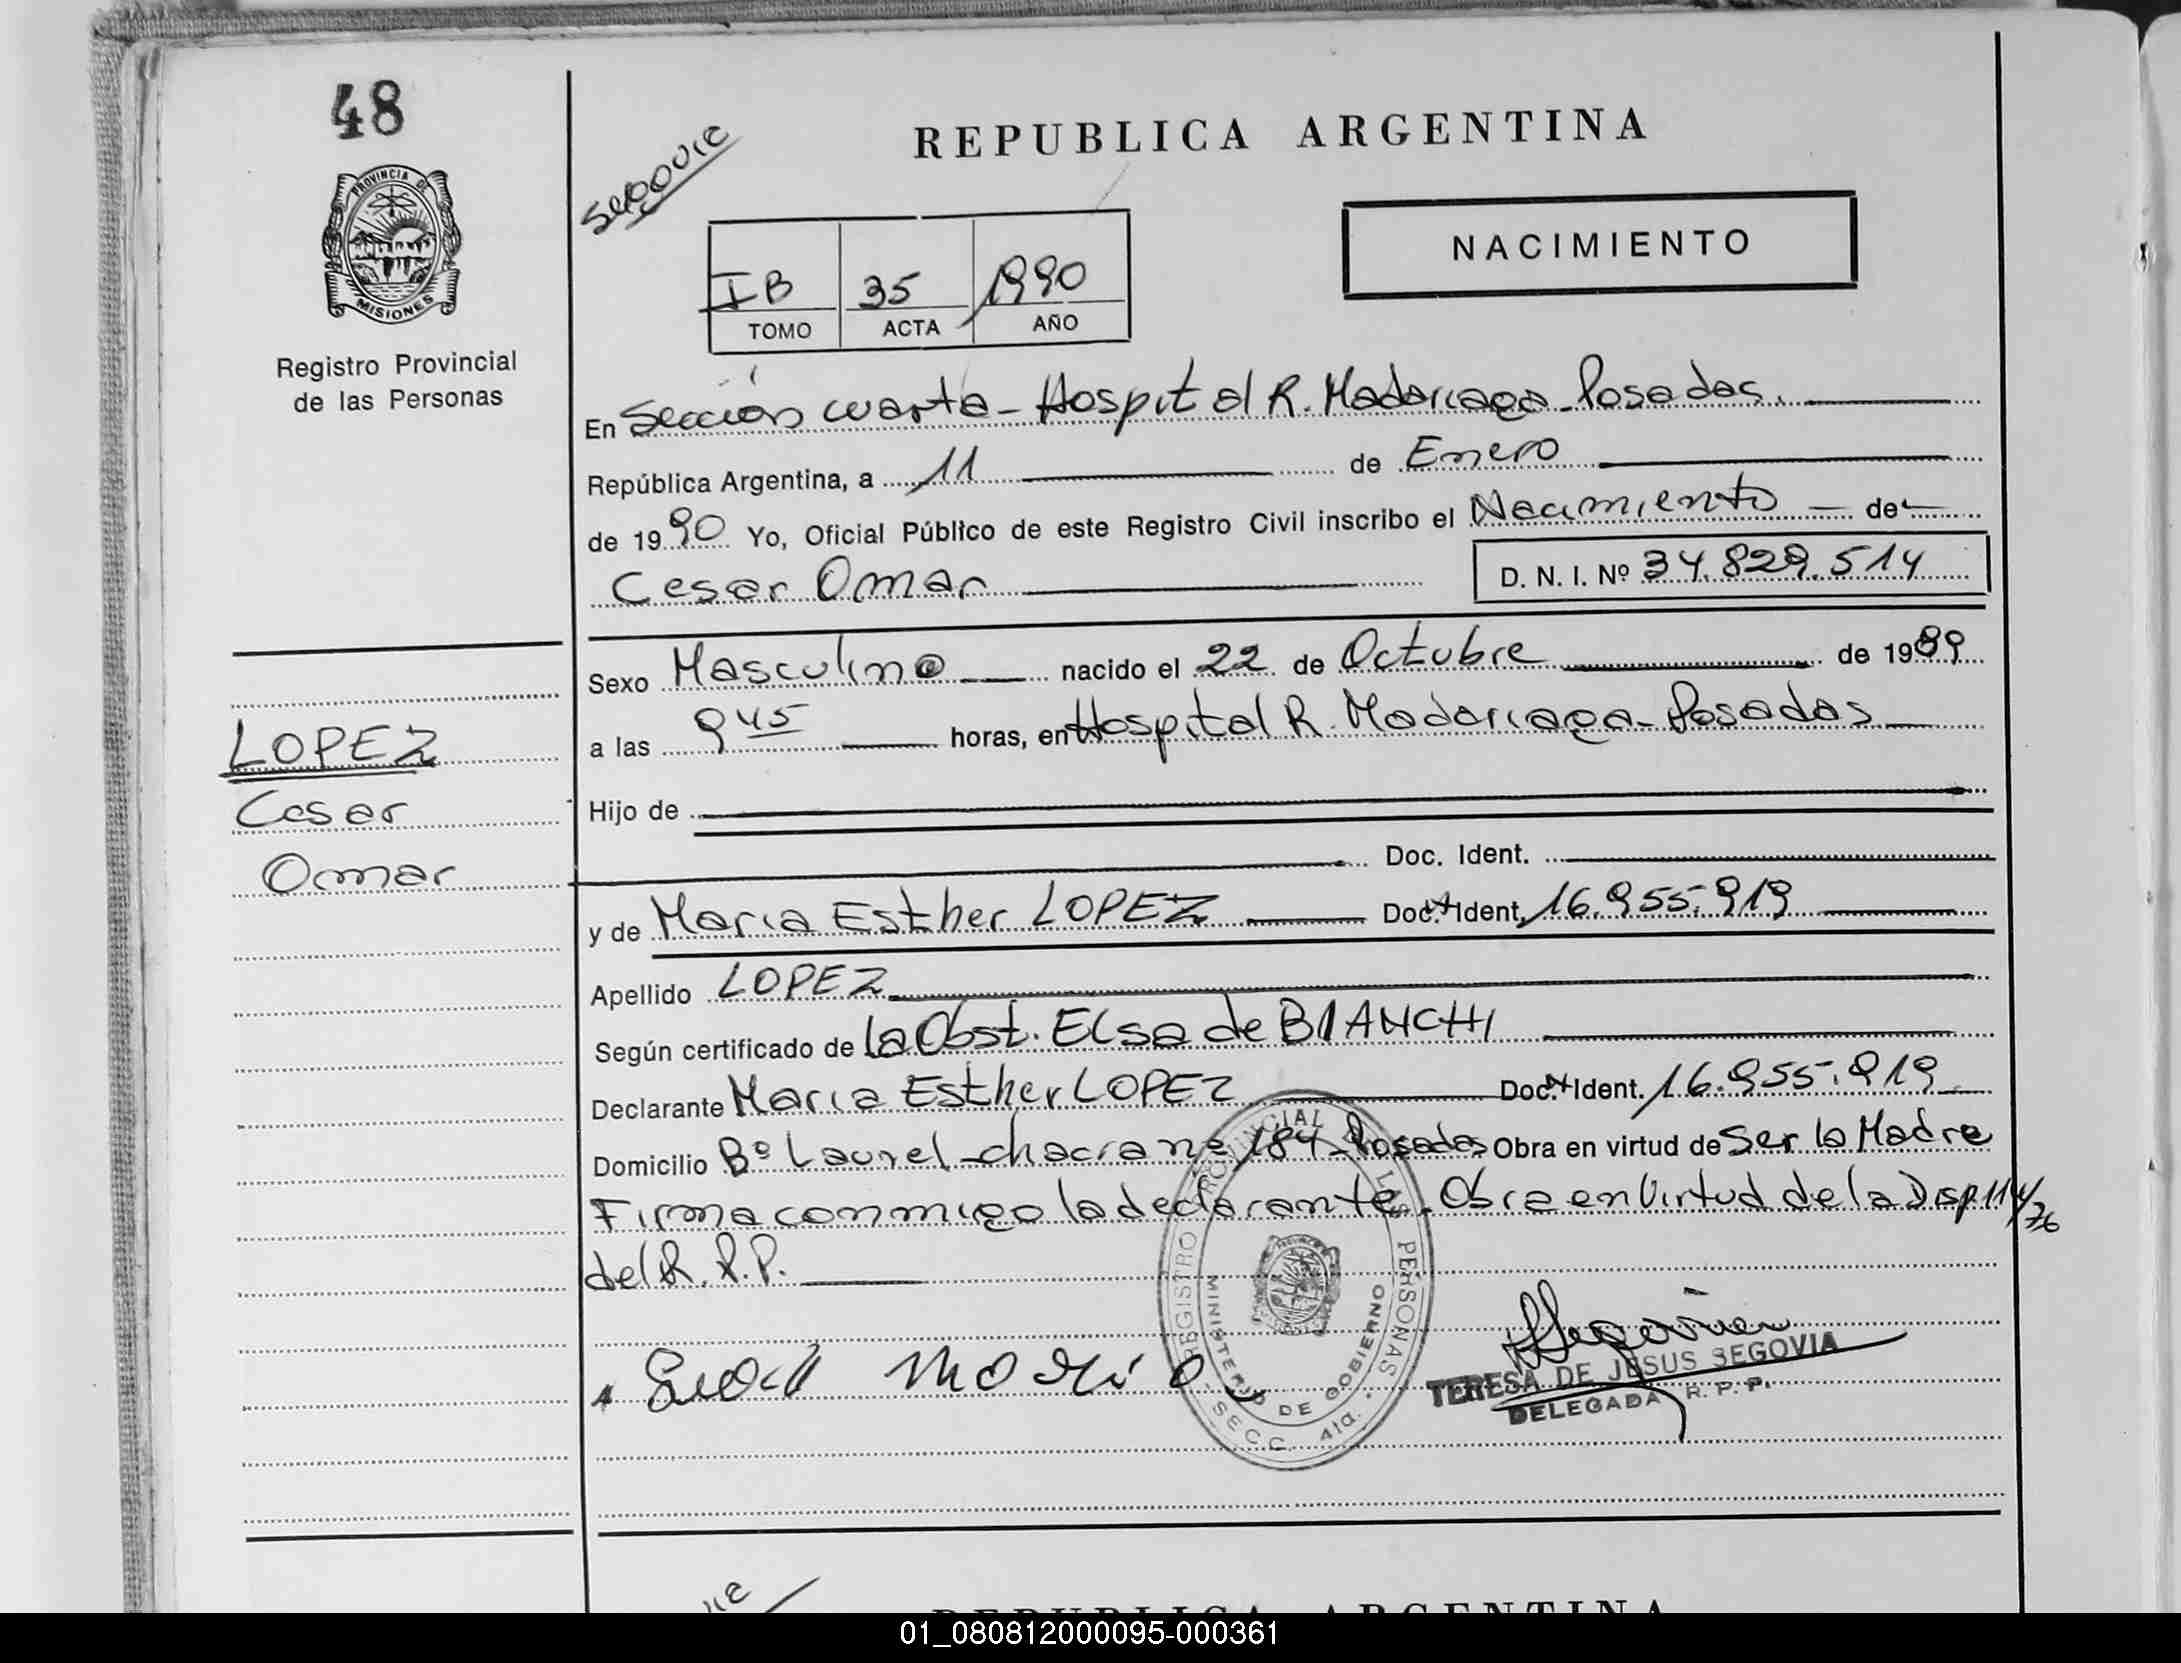 48
PROVINCIA DE
MISIONES
Registro Provincial
de las Personas
REPUBLICA ARGENTINA
NACIMIENTO
IB 35 1990
TOMO ACTA AÑO
En Sección cuarta - Hospital R. Madariaga - Posadas.
República Argentina, a 11 de Enero
de 1990 Yo, Oficial Público de este Registro Civil inscribo el Nacimiento de
Cesar Omar D. N. I. Nº 34.829.514
Sexo Masculino nacido el 22 de Octubre de 1989
a las 9 45 horas, en Hospital R. Madariaga - Posadas
LOPEZ
Cesar
Omar
Hijo de
Doc. Ident.
y de Maria Esther LOPEZ Doc. Ident. 16.955.919
Apellido LOPEZ
Según certificado de la Obst. Elsa de BIANCHI
Declarante Maria Esther LOPEZ Doc. Ident. 16.955.919
Domicilio Bº Laurel - chacra nº 184 - Posadas Obra en virtud de Ser la Madre
Firma conmigo la declarante. Obra en Virtud de la Disp. 114/76
del R. P. P.
REGISTRO PROVINCIAL DE LAS PERSONAS
MINISTERIO DE GOBIERNO
SECC. 4ta.
TERESA DE JESUS SEGOVIA
DELEGADA R. P. P.
REPUBLICA ARGENTINA
01_080812000095-000361